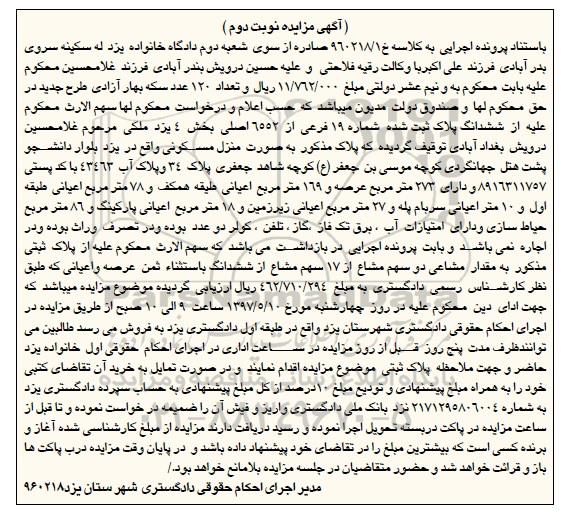 ( آگهی مزایده نوبت دوم )
باستناد پرونده اجرایی به کلاسه خ۹۶۰۲۱۸/۱ صادره از سوی شعبه دوم دادگاه خانواده یزد له سکینه سروی
بدر آبادی فرزند علی اکبربا وکالت رقیه فلاحتی و علیه حسین درویش بندر آبادی فرزند غلامحسین محکوم
علیه بابت محکوم به و نیم عشر دولتی مبلغ ۱۱/۷۶۲/۰۰۰ ریال و تعداد ۱۲۰ عدد سکه بهار آزادی طرح جدید در
حق محکوم لها و صندوق دولت مدیون میباشد که حسب اعلام و درخواست محکوم لها سهم الارث محکوم
علیه از ششدانگ پلاک ثبت شده شماره ۱۹ فرعی از ۶۵۵۲ اصلی بخش ۴ یزد ملکی مرحوم غلامحسین
درویش بغداد آبادی توقیف گردیده که پلاک مذکور به صورت منزل مسکونی واقع در یزد بلوار دانشجو
پشت هتل جهانگردی کوچه موسی بن جعفر (ع) کوچه شاهد جعفری پلاک ۳۴ وپلاک آب ۴۳۴۶۳ با کد پستی
۸۹۱۶۳۱۱۷۵۷ و دارای ۲۷۳ متر مربع عرصه و ۱۶۹ متر مربع اعیانی طبقه همکف و ۷۸ متر مربع اعیانی طبقه
اول و ۱۰ متر اعیانی سرپام پله و ۲۷ متر مربع اعیانی زیرزمین و ۱۸ متر مربع اعیانی پارکینگ و ۸۶ متر مربع
حیاط سازی ودارای امتیازات آب ، برق تک فاز ،گاز ، تلفن ، کولر دو عدد بوده ودر تصرف وراث بوده ودر
اجاره نمی باشد و بابت پرونده اجرایی در بازداشت می باشد که سهم الارث محکوم علیه از پلاک ثبتی
مذکور به مقدار مشاعی دو سهم مشاع از ۱۷ سهم مشاع از ششدانگ باستثناء ثمن عرصه واعیانی که طبق
نظر کارشناس رسمی دادگستری به مبلغ ۴۶۲/۷۱۰/۲۹۴ ریال ارزیابی گردیده موضوع مزایده میباشد که
جهت ادای دین محکوم علیه در روز چهارشنبه مورخ ۱۳۹۷/۵/۱۰ ساعت ۹ الی ۱۰ صبح از طریق مزایده در
اجرای احکام حقوقی دادگستری شهرستان یزد واقع در طبقه اول دادگستری یزد به فروش می رسد طالبین می
توانندظرف مدت پنج روز قبل از روز مزایده در ساعت اداری در اجرای احکام حقوقی اول خانواده یزد
حاضر و جهت ملاحظه پلاک ثبتی موضوع مزایده اقدام نمایند و در صورت تمایل به خرید آن تقاضای کتبی
خود را به همراه مبلغ پیشنهادی و تودیع مبلغ ۱۰درصد از کل مبلغ پیشنهادی به حساب سپرده دادگستری یزد
به شماره ۲۱۷۱۲۹۵۸۰۶۰۰۴ نزد بانک ملی دادگستری واریز و فیش آن را ضمیمه در خواست نموده و تا قبل از
ساعت مزایده در پاکت دربسته تحویل اجرا نموده و رسید دریافت دارند مزایده از مبلغ کارشناسی شده آغاز و
برنده کسی است که بیشترین مبلغ را در تقاضای خود پیشنهاد داده باشد و در پایان وقت مزایده درب پاکت ها
باز و قرائت خواهد شد و حضور متقاضیان در جلسه مزایده بلامانع خواهد بود./
مدیر اجرای احکام حقوقی دادگستری شهر ستان یزد۹۶۰۲۱۸